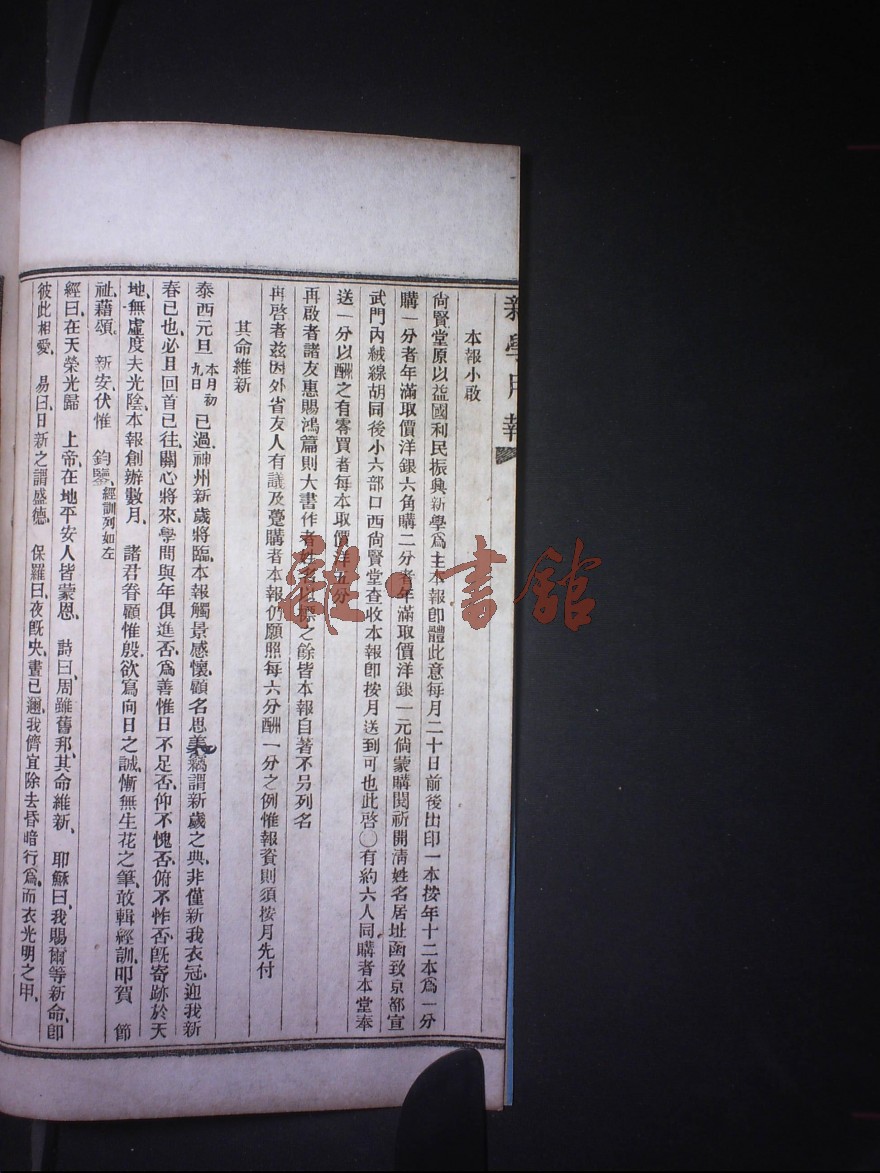 新學月報
本報小啟
尙賢堂原以益國利民振興新學爲主本報卽體此意每月二十日前後出印一本按年十二本爲一分
購一分者年滿取價洋銀六角購二分者年滿取價洋銀一元倘蒙購閱祈開淸姓名居址函致京都宣
武門內絨線胡同後小六部口西尙賢堂查收本報卽按月送到可也此啓〇有約六人同購者本堂奉
送一分以酬之有零買者每本取價洋五分
再啟者諸友惠賜鴻篇則大書作者姓名以標之餘皆本報自著不另列名
再啓者茲因外省友人有議及躉購者本報仍願照每六分酬一分之例惟報資則須按月先付
其命維新
泰西元旦本月初九日已過、神州新歲將臨、本報觸景感懷、顧名思義、竊謂新歲之典、非僅新我衣冠、迎我新
春已也、必且回首已往、關心將來、學問與年俱進否、爲善惟日不足否、仰不愧否、俯不怍否、旣寄跡於天
地、無虛度夫光陰、本報創辦數月、諸君眷顧惟殷、欲寫向日之誠、慚無生花之筆、敢輯經訓、叩賀 節
祉、藉頌 新安、伏惟 鈞鑒、經訓列如左
經曰、在天榮光歸 上帝、在地平安人皆蒙恩、 詩曰、周雖舊邦、其命維新、 耶穌曰、我賜爾等新命、卽
彼此相愛、 易曰、日新之謂盛德、 保羅曰、夜旣央、晝已邇、我儕宜除去昏暗行爲、而衣光明之甲、
雜·書館